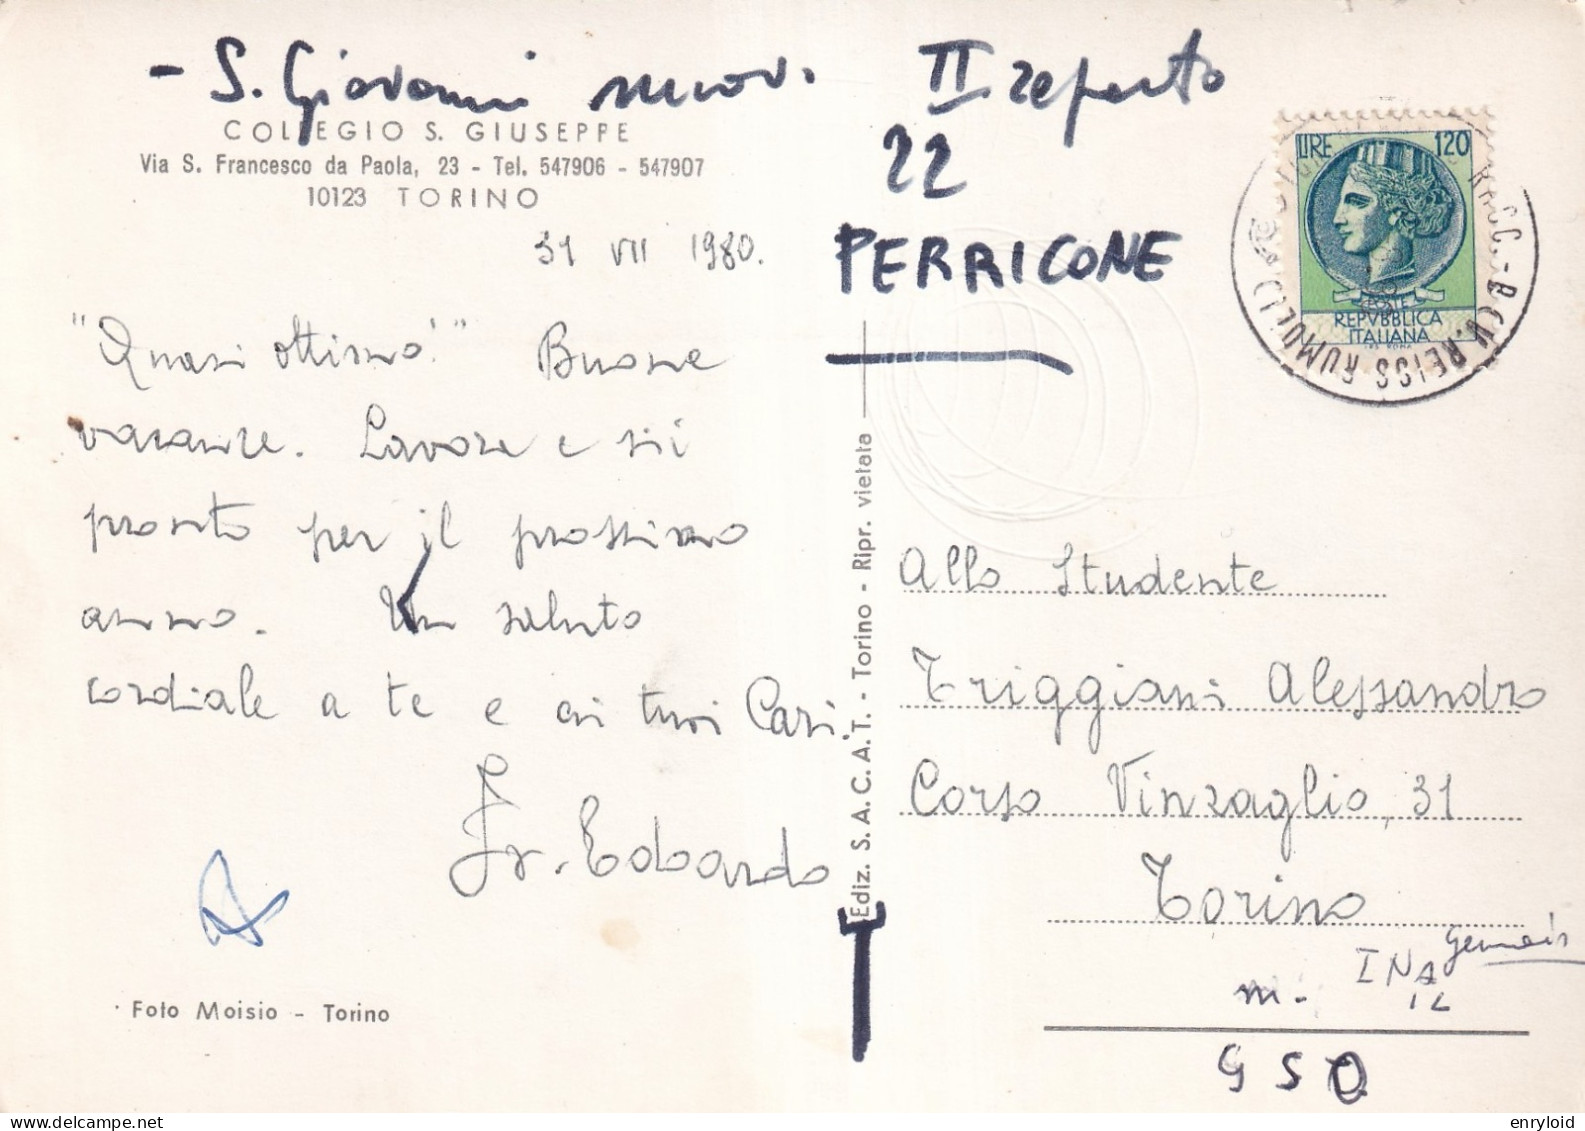 - S. Giovanni nuov. II reparto
22
PERRICONE
COLLEGIO S. GIUSEPPE
Via S. Francesco da Paola, 23 - Tel. 547906 - 547907
10123 TORINO
31 VII 1980.
"Quasi ottimo!" Buone
vacanze. Lavora e sii
pronto per il prossimo
anno. Un saluto
cordiale a te e ai tuoi Cari.
Fr. Edoardo
Foto Moisio - Torino
Ediz. S.A.C.A.T. - Torino - Ripr. vietata
LIRE 120
POSTE
REPVBBLICA
ITALIANA
Allo Studente
Triggiani Alessandro
Corso Vinzaglio, 31
Torino
m. INA
IL
G S O
enryloid
delcampe.net